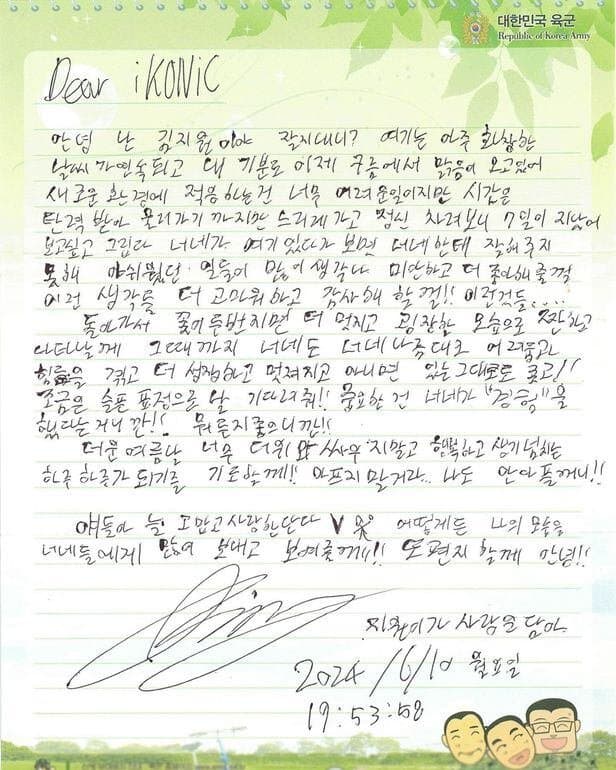 대한민국 육군
Republic of Korea Army
Dear iKONIC
안녕 난 김지원이야 잘지내니? 여기는 아주 화창한
날씨가 연속되고 내 기분도 이제 구름에서 맑음이 오고있어
새로운 환경에 적응하는건 너무 어려운일이지만 시간은
탄력 받아 올라가기 까지만 느리게 가고 정신 차려보니 7일이 지났어
보고싶고 그립다 너네가 여기 있다가 보면 너네한테 잘해주지
못해 아쉬웠던 일들이 많이 생각나 미안하고 더 좋아해 줄껄
이런 생각들 더 고마워하고 감사해 할껄!! 이런것들....
돌아가서 꽃이 두번지면 더 멋지고 굉장한 모습으로 짠하고
나타날게 그때까지 너네도 너네 나름대로 어려움과
힘듦을 겪고 더 성장하고 멋져지고 아니면 있는 그대로도 좋고!!
조금은 슬픈 표정으로 날 기다려줘!! 중요한 건 너네가 "경험"을
했다는 거니깐!! 뭐든지좋으니깐!!
더운 여름날 너무 더위와 싸우지말고 행복하고 생기 넘치는
하루 하루가 되기를 기도할께!! 아프지 말거라.. 나도 안아플꺼니!!
얘들아 늘 고맙고 사랑한단다 V 어떻게든 나의 모습을
너네들에게 많이 보내고 보여줄께!! 또 편지 할께 안녕!!
지원이가 사랑을 담아.
2024/6/10 월요일
19:53:58